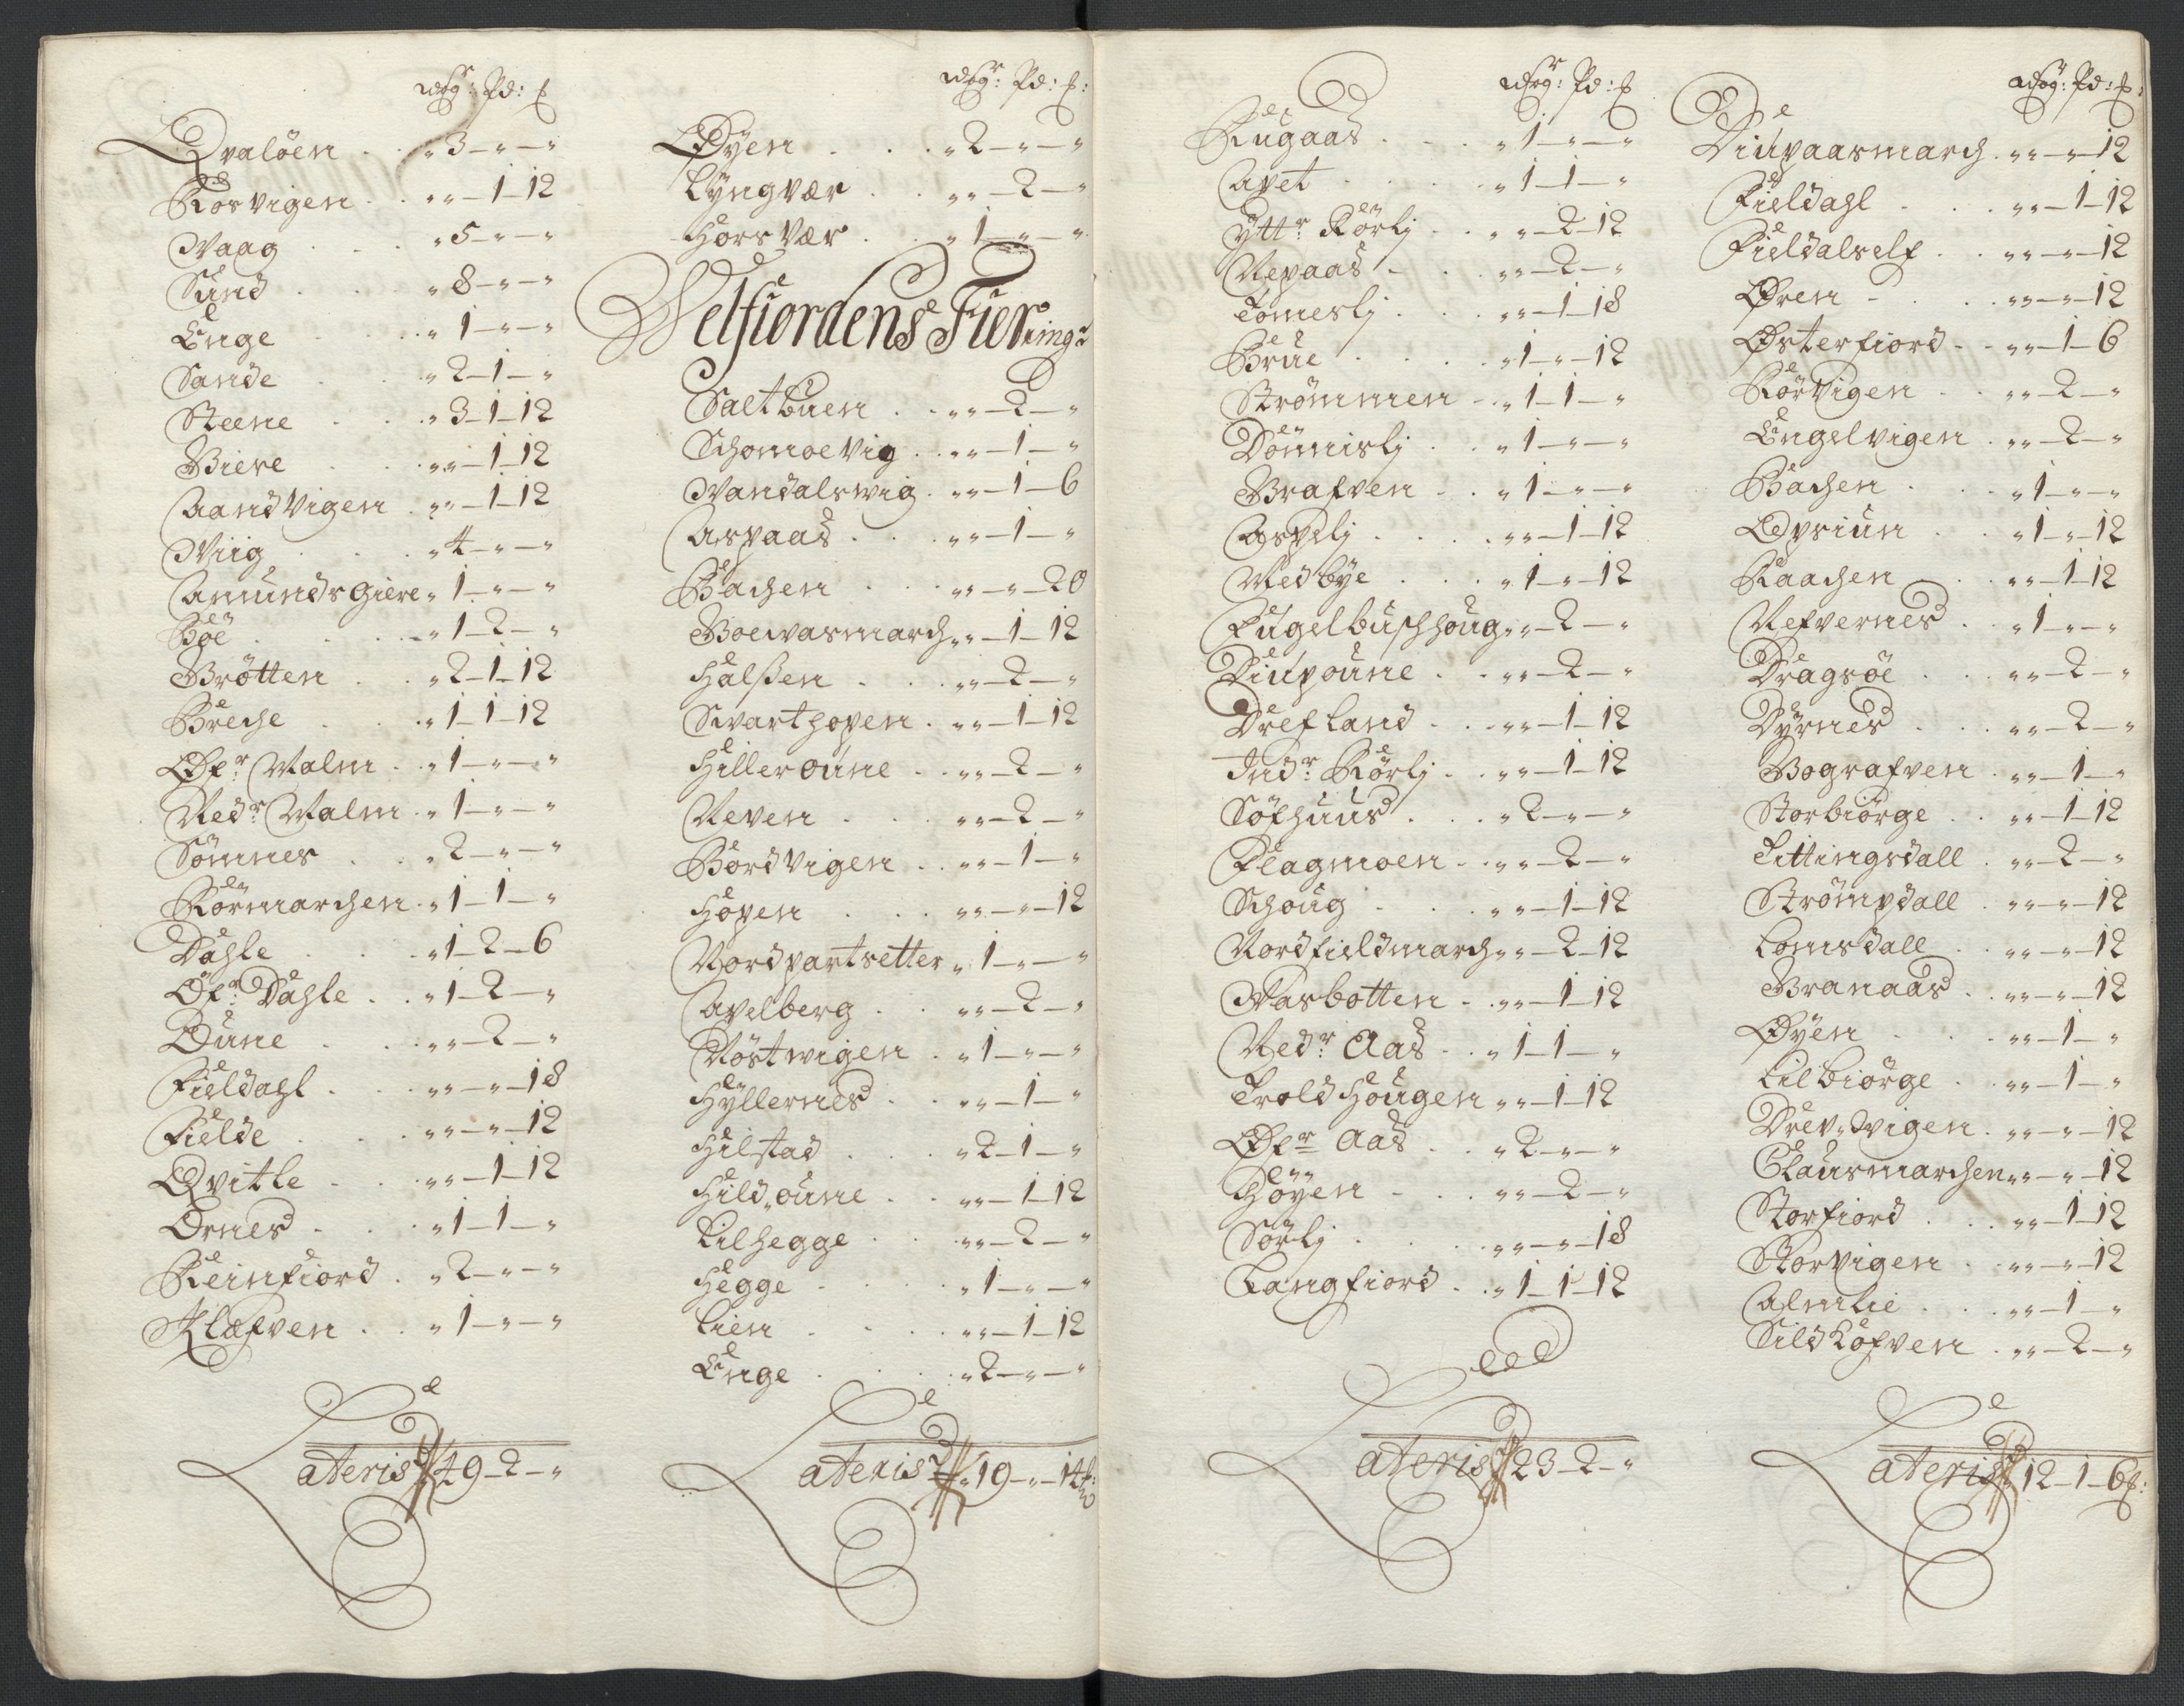 Wog: Pd: £
Qvaløen . . „ 3 – „ – „
Rørvigen . . „ „ – 1 – 12
Waag . . . „ 5 – „ – „
Sund . . . „ 8 – „ – „
Enge . . . „ 1 – „ – „
Sande . . „ 2 – 1 – „
Steene . . „ 3 – 1 – 12
Biere . . „ „ – 1 – 12
Aandvigen . „ „ – 1 – 12
Wiig . . . „ 4 – „ – „
Amundsgiere „ 1 – „ – „
Bøe . . . „ 1 – 2 – „
Brøtten . . „ 2 – 1 – 12
Breche . . „ 1 – 1 – 12
Øfr: Malm . „ 1 – „ – „
Nedr: Malm . „ 1 – „ – „
Sømnes . . „ 2 – „ – „
Rørmarchen . „ 1 – 1 – „
Dahle . . „ 1 – 2 – 6
Øfr: Dahle . . „ 1 – 2 – „
Dune . . . „ „ – 2 – „
Fieldahl . . „ „ – „ – 18
Fielde . . „ „ – „ – 12
Qvitle . . „ „ – 1 – 12
Ørnes . . „ 1 – 1 – „
Reinfiord . „ 2 – „ – „
Klafven . . „ 1 – „ – „
Lateris 49 – 2 – „
Wog: Pd: £:
Øyen . . . „ 2 – „ – „
Lyngvær . . „ „ – 2 – „
Horsvær . . „ 1 – „ – „
Welfiordens Fiering:
Saltbuen . . „ „ – 2 – „
Schomoevig . „ „ – 1 – „
Wandalswig . „ „ – 1 – 6
Aspaas . . . „ „ – 1 – „
Bachen . . „ „ – „ – 20
Boewasmarch „ „ – 1 – 12
Halsen . . „ „ – 2 – „
Swarthopen . „ „ – 1 – 12
Hilleroune . . „ „ – 2 – „
Neven . . . „ „ – 2 – „
Bordvigen . . „ „ – 1 – „
Hopen . . . „ „ – „ – 12
Nordpartsetter „ 1 – „ – „
Avelberg . . „ „ – 2 – „
Nøstwigen . . „ 1 – „ – „
Hyllernes . . „ „ – 1 – „
Hilstad . . „ 2 – 1 – „
Hild„oune . . „ „ – 1 – 12
Lilhegge . . „ „ – 2 – „
Hegge . . . „ 1 – „ – „
Lien . . . „ „ – 1 – 12
Enge . . . „ 2 – „ – „
Lateris „ 19 – „ – 14 £:
Wog: Pd: £
Rugaas . . . „ 1 – „ – „
Avet . . . „ 1 – 1 – „
Yttr: Rørlj . . „ „ – 2 – 12
Nepaas . . „ „ – 2 – „
Tomeslj . . „ „ – 1 – 18
Brue . . . „ 1 – „ – 12
Strømmen . . „ 1 – 1 – „
Dønnislj . . „ 1 – „ – „
Brafven . . „ 1 – „ – „
Aspelj . . . „ „ – 1 – 12
Nedbye . . „ 1 – „ – 12
Fugelbuschhoug „ „ – 2 – „
Diupoune . . „ „ – 2 – „
Drefland . . „ „ – 1 – 12
Indr: Rørlj . . „ „ – 1 – 12
Søfhuus . . „ 2 – „ – „
Flagmoen . . „ „ – 2 – „
Schoug . . „ „ – 1 – 12
Nordfieldmarch „ „ – 2 – 12
Wasbotten . . „ „ – 1 – 12
Nedr: Aas . . „ 1 – 1 – „
Troldhougen „ „ – 1 – 12
Øfr: Aas . . „ 2 – „ – „
Høyen . . . „ „ – 2 – „
Sørlj . . . „ „ – „ – 18
Langfiord . . „ 1 – 1 – 12
Lateris 23 – 2 – „
Wog: Pd: £:
Diupaasmarch . „ „ – „ – 12
Fieldahl . . „ „ – 1 – 12
Fieldalself . . „ „ – „ – 12
Øren . . . „ „ – „ – 12
Østerfiord . . „ „ – 1 – 6
Rørvigen . . „ „ – 2 – „
Engelvigen . „ „ – 2 – „
Bachen . . „ 1 – „ – „
Opsiun . . „ 1 – „ – 12
Raachen . . „ „ – 1 – 12
Nefvernes . . „ 1 – „ – „
Dragsøe . . „ „ – 2 – „
Dyrnes . . „ „ – 2 – „
Bografven . „ „ – 1 – „
Storbiørge . . „ „ – 1 – 12
Tittingsdall . „ „ – 2 – „
Strømpdall . „ „ – „ – 12
Lomsdall . . „ „ – „ – 12
Branaas . . „ „ – „ – 12
Øyen . . . „ „ – 1 – „
Lilbiørge . . „ „ – 1 – „
Drev„vigen . „ „ – „ – 12
Clausmarchen „ „ – „ – 12
Storfiord . . „ „ – 1 – 12
Storvigen . „ „ – „ – 12
Almlie . . „ „ – 1 – „
Sildkofven . „ „ – 2 – „
Lateris 12 – 1 – 6 £: